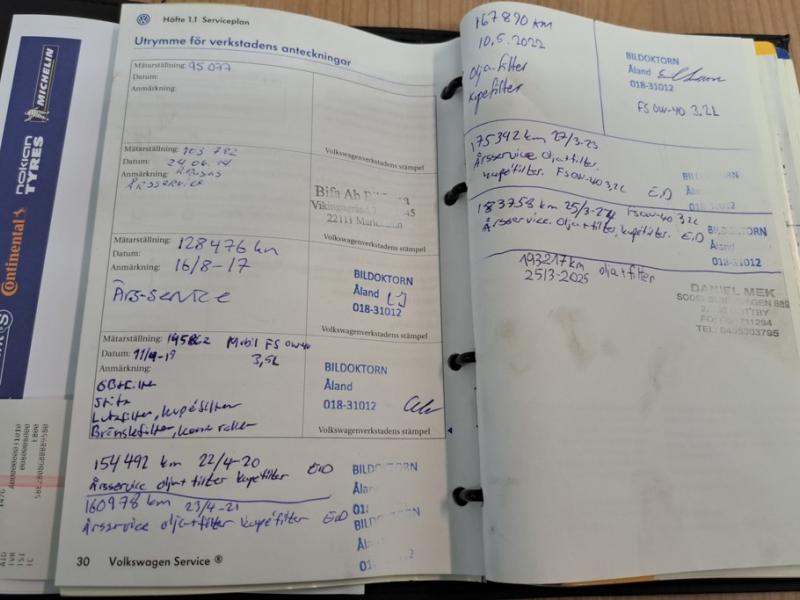 MICHELIN
NOKIAN
TYRES
Continental
Häfte 1.1 Serviceplan
Utrymme för verkstadens anteckningar
Mätarställning: 95 077
Datum:
Anmärkning:
Volkswagenverkstadens stämpel
Mätarställning: 103 782
Datum: 24.06.14
Anmärkning:
ÅRSSERVICE
Bifa Ab
22111
Volkswagenverkstadens stämpel
Mätarställning: 128476 km
Datum: 16/8-17
Anmärkning:
Års-service
BILDOKTORN
Åland
018-31012
Volkswagenverkstadens stämpel
Mätarställning: Mobil FS 0W-40
Datum: 3,5L
Anmärkning:
Luftfilter, kupéfilter
Bränslefilter,
BILDOKTORN
Åland
018-31012
Volkswagenverkstadens stämpel
154492 km 22/4-20
Årsservice olja+filter kupéfilter
160978 km 23/4-21
Årsservice olja+filter kupéfilter
30 Volkswagen Service ®
167890 km
10.5.2022
Olja+filter
Kupefilter
BILDOKTORN
Åland
018-31012
FS 0W-40 3,2L
175392 km 27/3-23
Årsservice olja+filter.
kupéfilter. FS 0W-40 3,2L
BILDOKTORN
Åland
018-31012
183758 km 25/3-24 FS 0W-40 3,2L
Årsservice. Olja+filter, kupefilter.
BILDOKTORN
Åland
018-31012
193217 km olja+filter
25/3-2025
DANIEL MEK